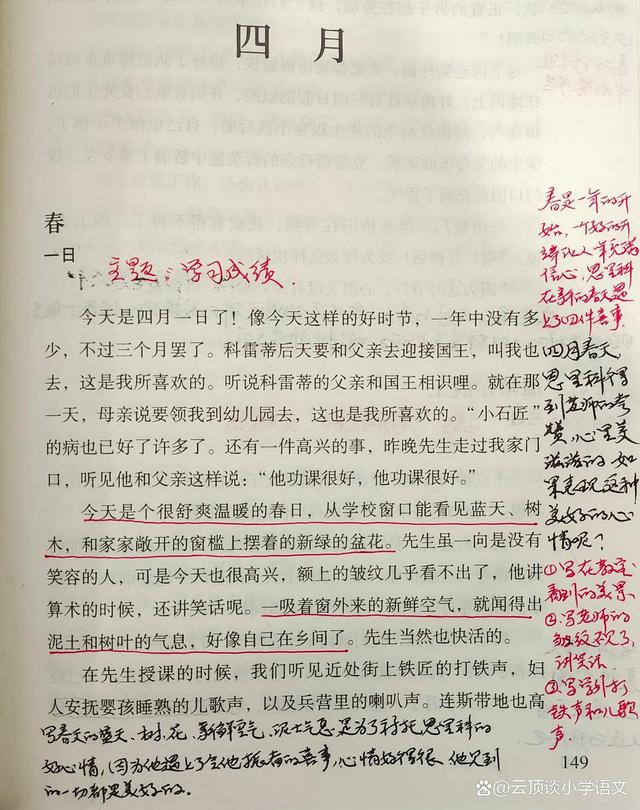 四月
春
一日
主题：学习成绩。
今天是四月一日了！像今天这样的好时节，一年中没有多
少，不过三个月罢了。科雷蒂后天要和父亲去迎接国王，叫我也
去，这是我所喜欢的。听说科雷蒂的父亲和国王相识哩。就在那
一天，母亲说要领我到幼儿园去，这也是我所喜欢的。“小石匠”
的病也已好了许多了。还有一件高兴的事，昨晚先生走过我家门
口，听见他和父亲这样说：“他功课很好，他功课很好。”
今天是个很舒爽温暖的春日，从学校窗口能看见蓝天、树
木，和家家敞开的窗槛上摆着的新绿的盆花。先生虽一向是没有
笑容的人，可是今天也很高兴，额上的皱纹几乎看不出了，他讲
算术的时候，还讲笑话呢。一吸着窗外来的新鲜空气，就闻得出
泥土和树叶的气息，好像自己在乡间了。先生当然也快活的。
在先生授课的时候，我们听见近处街上铁匠的打铁声，妇
人安抚婴孩睡熟的儿歌声，以及兵营里的喇叭声。连斯带地也高
写春天的蓝天、树、花、新鲜空气、泥土气息是为了衬托思里科的
好心情，因为他遇上了令他振奋的喜事，心情好得很，他见到
的一切都是美好的。
春是一年的开
始，一个好的开
端让人充满
信心，思里科
在新的春天遇
上了四件喜事
四月春天，
思里科得
到老师的夸
赞，心里美
滋滋的，如
果表现这种
美好的心
情呢？
①写在教室
看到的美景
②写老师的
皱纹不见了，
讲笑话
③写学外打
铁声和儿歌
声。
149
@云顶谈小学语文